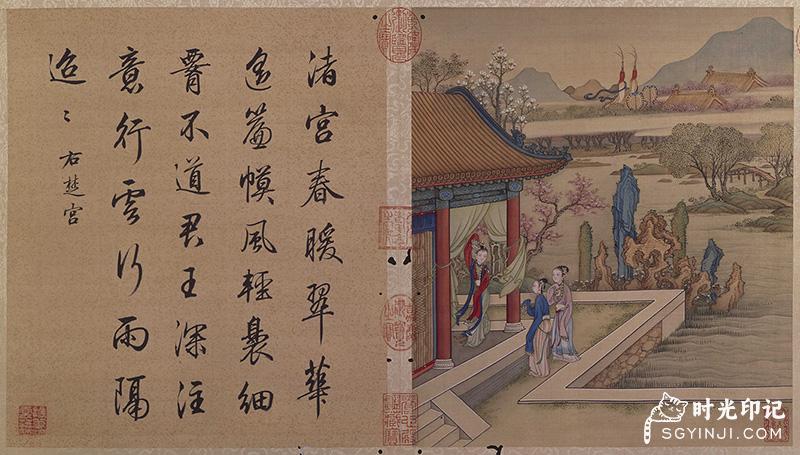 渚宮春暖翠華
遙簾幙風輕裊細
腰不道君王深注
意行雲行雨隔
迢〻右楚宮
时光印记
SGYINJI.COM